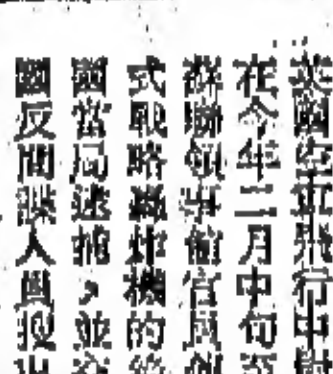 英國空軍飛行中
在今年二月中旬
蘇聯領事館官員
式戰略轟炸機的
國當局逮捕，並
國反間諜人員搜出